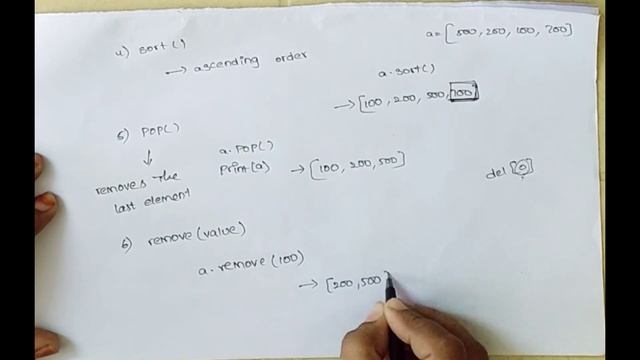 a = [500, 200, 100, 700]
4) sort()
→ ascending order
a.sort()
→ [100, 200, 500, 700]
5) POP()
↓
removes the
last element
a.POP()
Print(a) → [100, 200, 500]
del [0]
6) remove(value)
a.remove(100)
→ [200, 500]